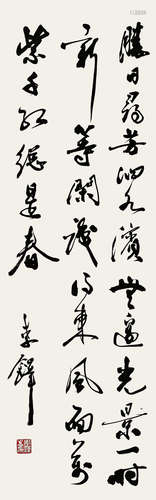 勝日尋芳泗水濱無邊光景一時
新等閑識得東風面萬
紫千紅總是春
李鐸